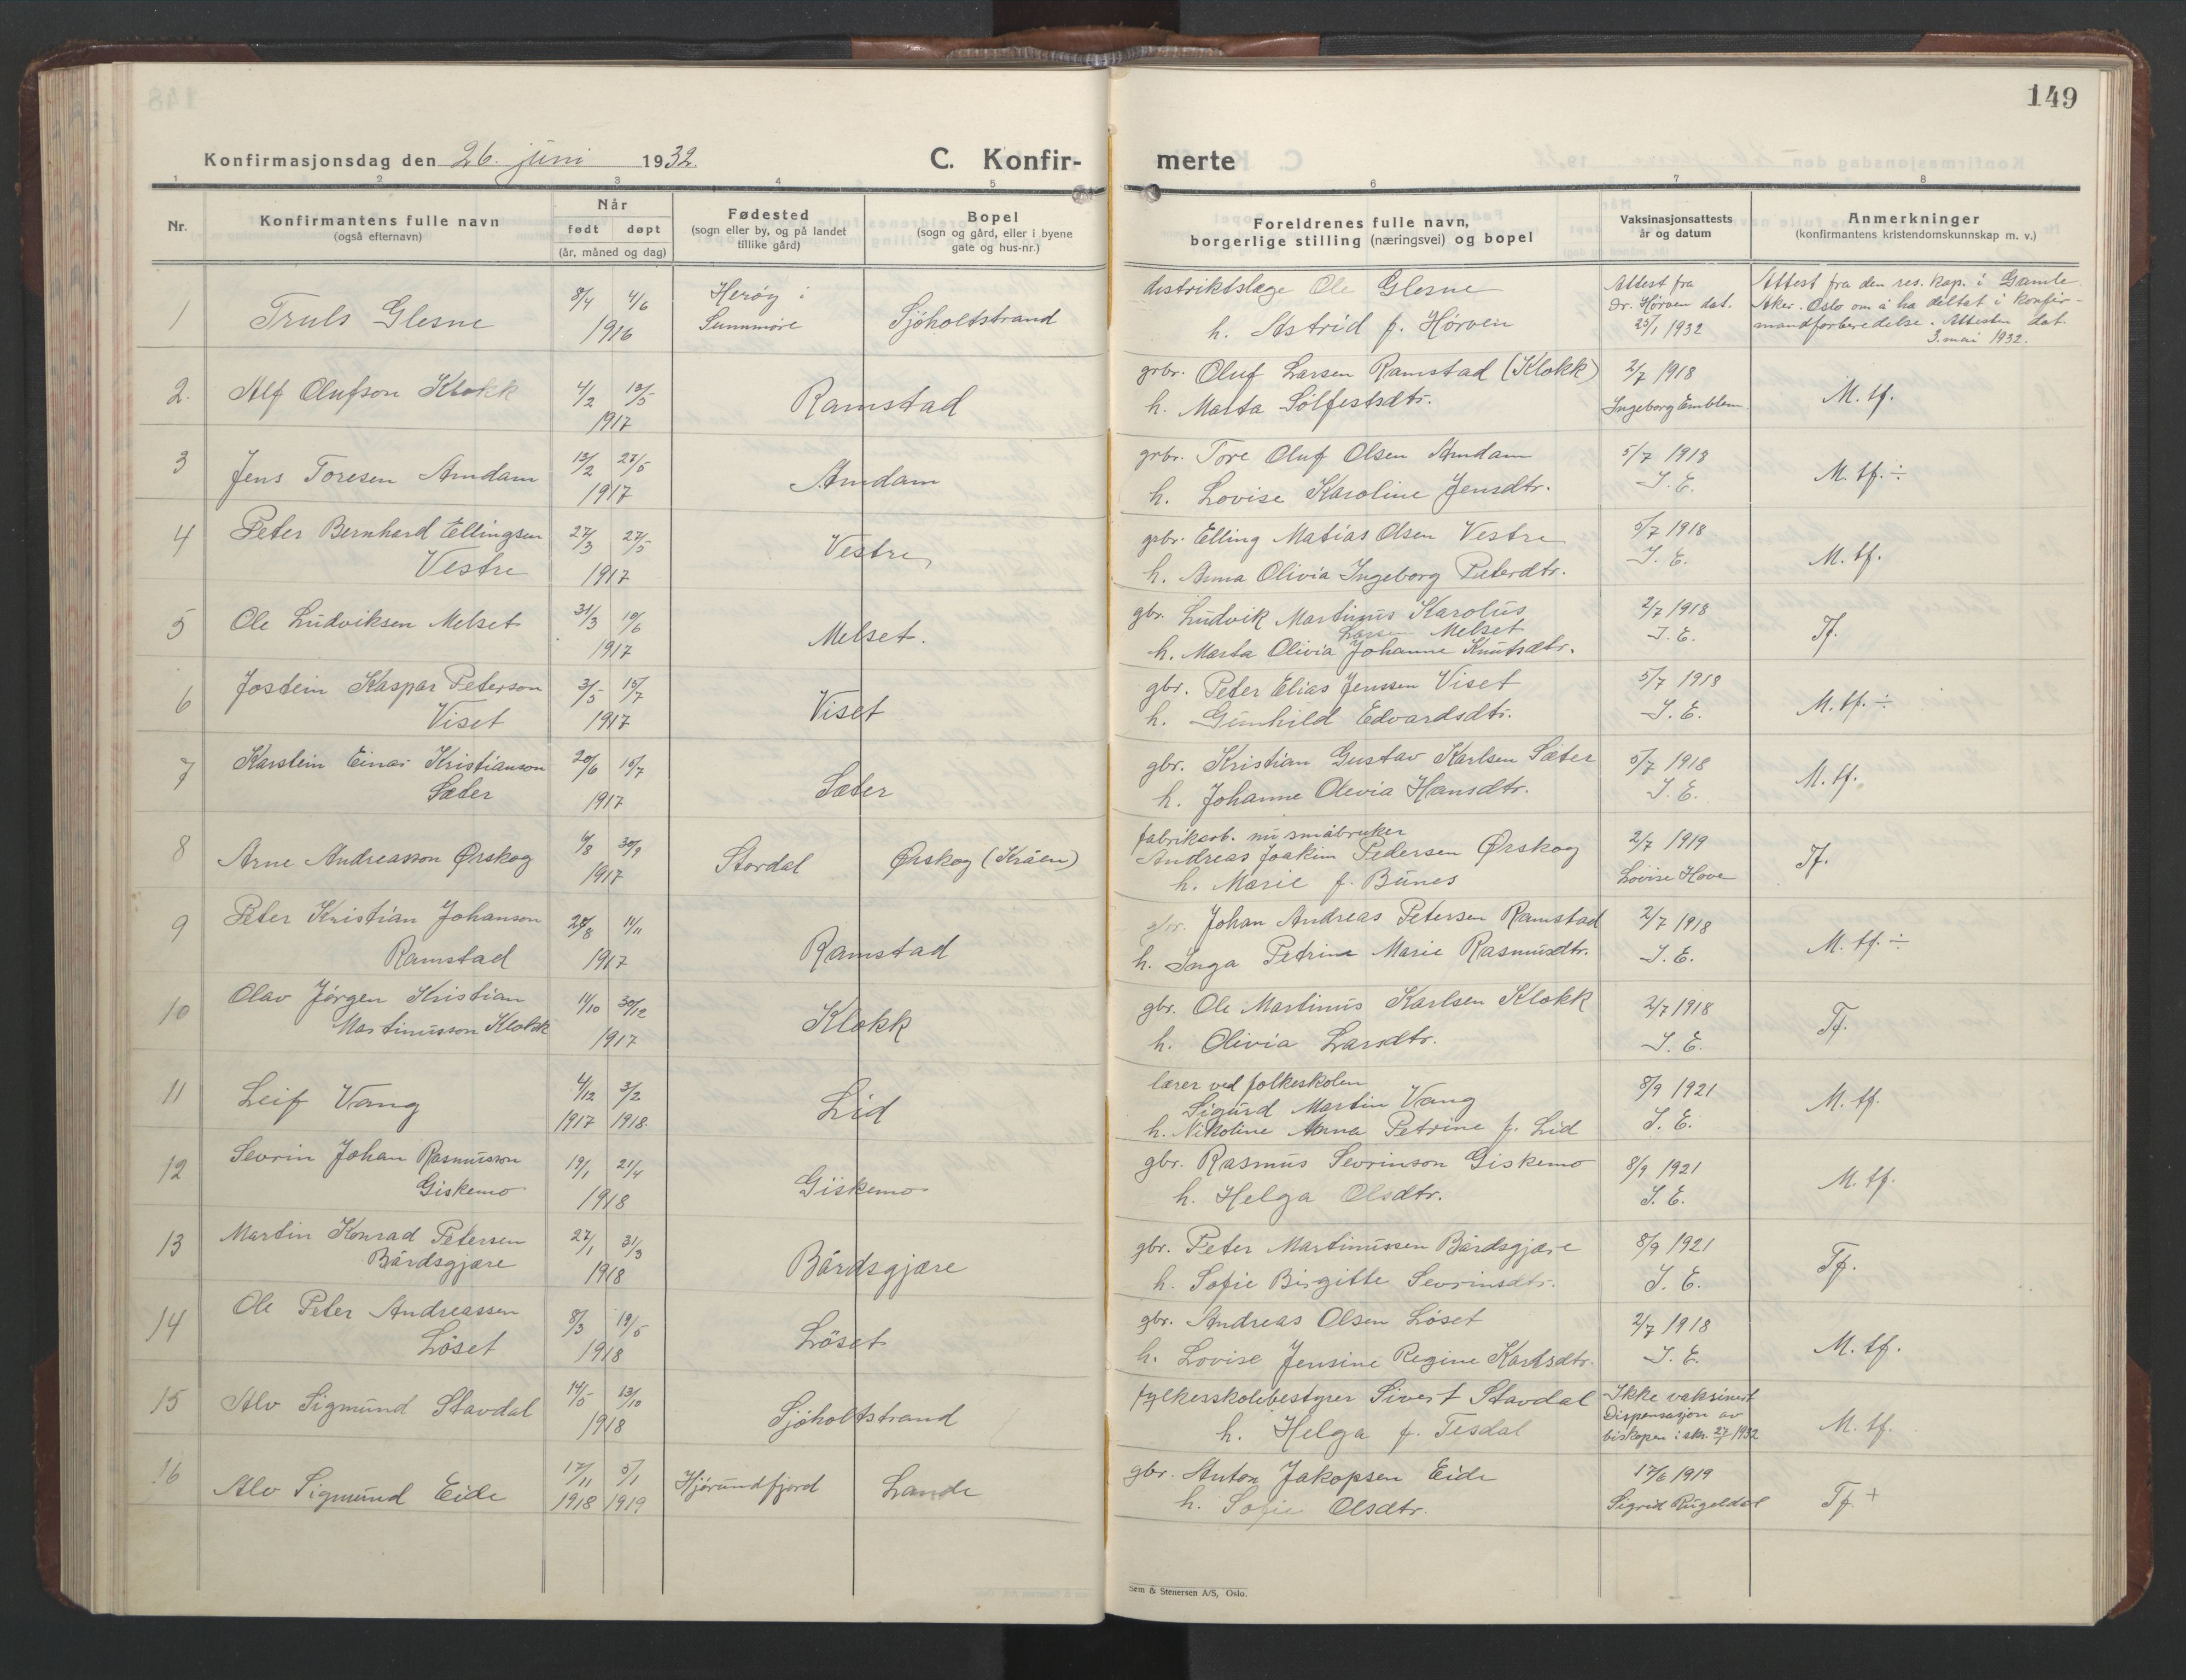 149
Konfirmasjonsdag den 26. juni 1932.
C. Konfir-
merte
1 2 3 4 5 6 7 8
Nr.
Konfirmantens fulle navn
(også efternavn)
Når
født døpt
(år, måned og dag)
Fødested
(sogn eller by, og på landet
tillike gård)
Bopel
(sogn og gård, eller i byene
gate og hus-nr.)
Foreldrenes fulle navn,
borgerlige stilling (næringsvei) og bopel
Vaksinasjonsattests
år og datum
Anmerkninger
(konfirmantens kristendomskunnskap m. v.)
1 Truls Glesne 8/4 4/6 1916 Herøy i Sunnmøre Sjøholtstrand
distriktslæge Ole Glesne
h. Astrid f. Hørven
Attest fra
Dr. Hørven dat.
25/1 1932
Attest fra den res. kap. i Gamle
Aker. Oslo om å ha deltat i konfir-
mandforberedelse. Attesten dat.
3. mai 1932.
2. Alf Olufson Klokk 4/2 13/5 1917 Ramstad
grbr. Oluf Larsen Ramstad (Klokk)
h. Marta Sølfestsdtr.
2/7 1918
Ingeborg Emblem
M. tf.
3 Jens Toresen Amdam 13/2 27/5 1917 Amdam
grbr. Tore Oluf Olsen Amdam
h. Lovise Karoline Jensdtr.
5/7 1918
I. E.
M. tf. ÷
4 Peter Bernhard Ellingsen
Vestre 27/3 27/5 1917 Vestre
grbr. Elling Matias Olsen Vestre
h. Anna Olivia Ingeborg Peterdtr.
5/7 1918
I. E.
M. tf.
5 Ole Ludviksen Melset 31/3 10/6 1917 Melset.
gbr. Ludvik Martinus Karolus
Larsen Melset
h. Marta Olivia Johanne Knutsdtr.
2/7 1918
I. E.
Tf.
6 Jostein Kaspar Peterson
Viset 3/5 15/7 1917 Viset
gbr. Peter Elias Jenssen Viset
h. Gunhild Edvardsdtr.
5/7 1918
I. E.
M. tf. ÷
7 Karstein Einar Kristianson
Sæter 20/6 15/7 1917 Sæter
gbr. Kristian Gustav Karlsen Sæter
h. Johanne Olevia Hansdtr.
5/7 1918
I. E.
M. tf.
8 Arne Andreasson Ørskog 6/8 30/9 1917 Stordal Ørskog (Kråen)
fabrikarb. nu småbruker
Andreas Joakim Pedersen Ørskog
h. Marie f. Bünes
2/7 1919
Lovise Hove
Tf.
9 Peter Kristian Johanson
Ramstad 24/8 11/11 1917 Ramstad
Johan Andreas Petersen Ramstad
h. Inga Petrina Marie Rasmusdtr.
2/7 1918
I. E.
M. tf. ÷
10 Olav Jørgen Kristian
Martinusson Klokk 11/10 30/12 1917 Klokk
gbr. Ole Martinus Karlsen Klokk
h. Olivia Larsdtr.
2/7 1918
I. E.
Tf.
11 Leif Vang 4/12 3/2
1917 1918 Lid
lærer ved folkeskolen
Sigurd Martin Vang
h. Nikoline Anna Petrine f. Lid
8/9 1921
I. E.
M. tf.
12 Sevrin Johan Rasmusson
Giskemo 19/1 21/4 1918 Giskemo
gbr. Rasmus Sevrinson Giskemo
h. Helga Olsdtr.
8/9 1921
I. E.
M. tf.
13 Martin Konrad Petersen
Bårdsgjære 27/1 31/3 1918 Bårdsgjære
gbr. Peter Martinussen Bårdsgjære
h. Sofie Birgitte Sevrinsdtr.
8/9 1921
I. E.
Tf.
14 Ole Peter Andreassen
Løset 8/3 19/5 1918 Løset
gbr. Andreas Olsen Løset
h. Lovise Jensine Regine Karlsdtr.
2/7 1918
I. E.
M. tf.
15 Alv Sigmund Stavdal 14/5 13/10 1918 Sjøholtstrand
fylkesskolebestyrer Sivert Stavdal
h. Helga f. Tesdal
Ikke vaksinert
Dispensasjon av
biskopen i skr. 27/ 1932
M. tf.
16 Alv Sigmund Eide 17/11 5/1
1918 1919 Hjørundfjord Lande
gbr. Anton Jakopsen Eide
h. Sofie Olsdtr.
17/6 1919
Sigrid
Tf +
Sem & Stenersen A/S, Oslo.